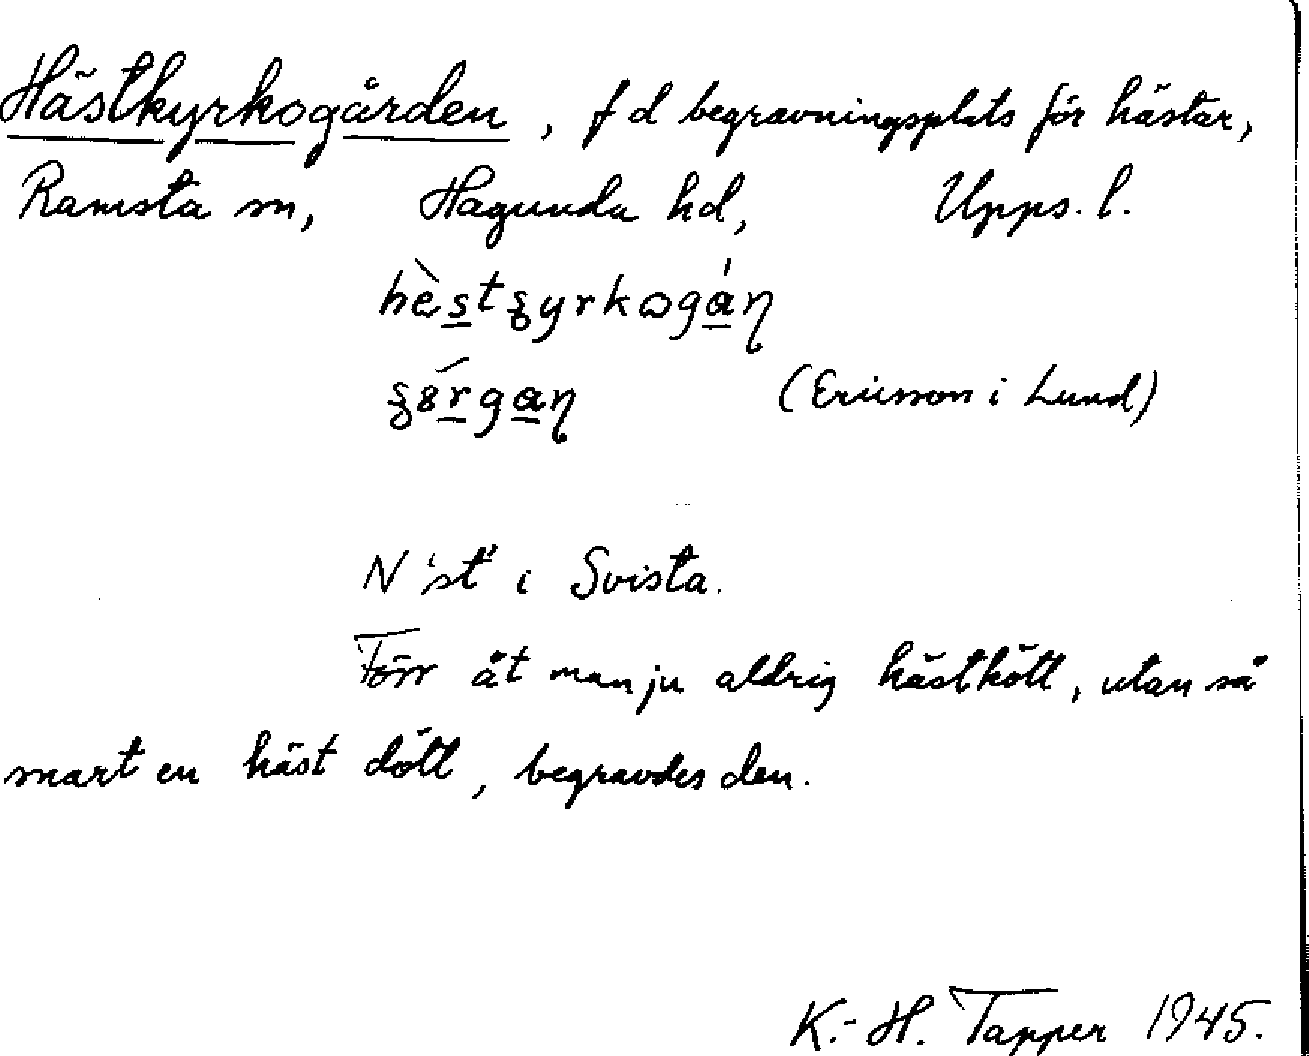 Hästkyrkogården, f d begravningsplats för hästar,
Ramsta sn, Hagunda hd, Upps. l.
(Ericsson i Lund)
N 'st' i Svista.
Förr åt man ju aldrig hästkött, utan så
snart en häst dött, begravdes den.
K.-H. Tapper 1945.